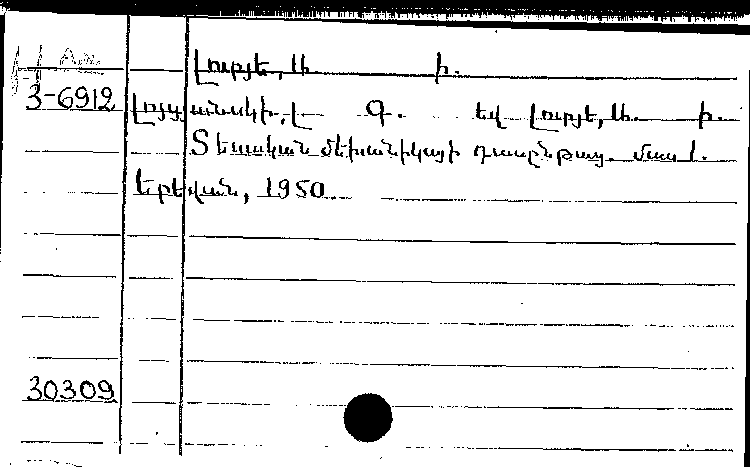 Լուրյե, Ա. Ի.
3-6912 Լոյցյանսկի, Լ. Գ. եվ Լուրյե, Ա. Ի.
Տեսական մեխանիկայի դասընթաց. մաս 1.
Երեվան, 1950
30309